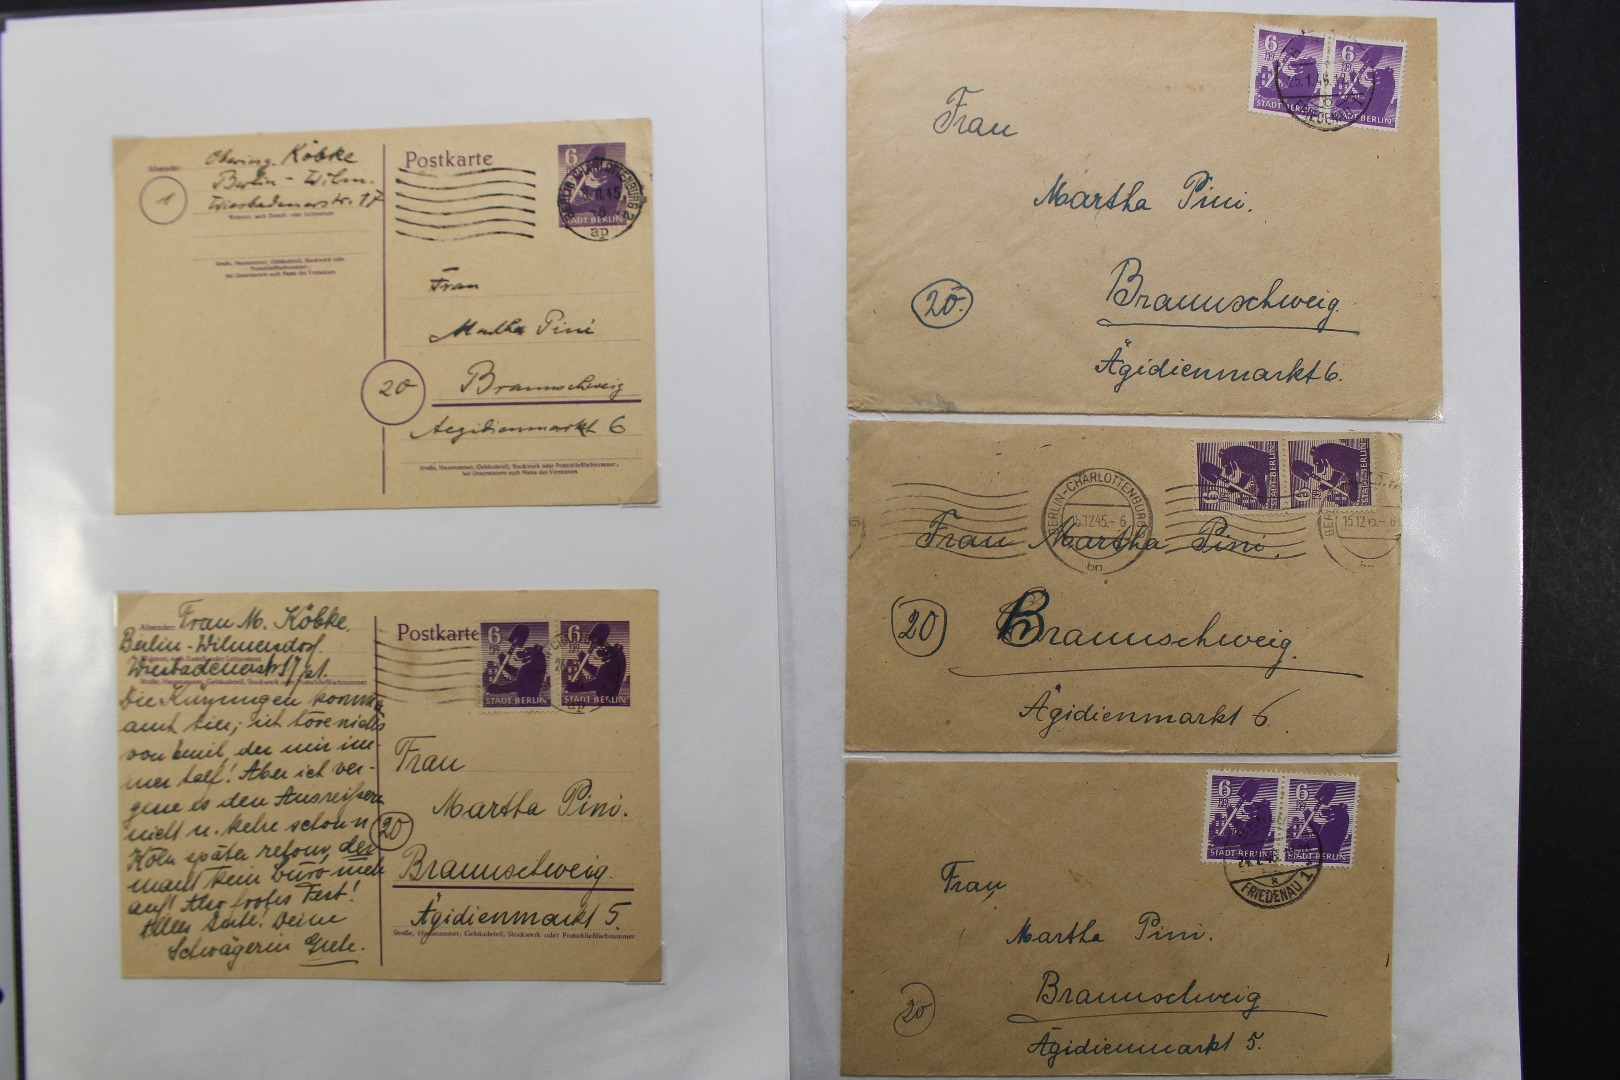 Absender:
Obering. Köbke
Berlin - Wilm.
Wiesbadenerstr. 17
Wohnort, auch Zustell- oder Leitpostamt
1
Straße, Hausnummer, Gebäudeteil, Stockwerk oder
Postschließfachnummer;
bei Untermietern auch Name des Vermieters
Postkarte
6
STADT BERLIN
BERLIN-CHARLOTTENBURG 2
11.45
ap
Frau
Martha Pini
20
Braunschweig
Aegidienmarkt 6
Straße, Hausnummer, Gebäudeteil, Stockwerk oder Postschließfachnummer;
bei Untermietern auch Name des Vermieters
Absender: Frau M. Köbke
Berlin-Wilmersdorf.
Wiesbadenerstr 17
Straße, Hausnummer, Gebäudeteil, Stockwerk oder Postschließfachnummer
Die Kürzungen
amt ein; ich höre nichts
von Emil, der mir im-
mer half! Aber ich ver-
den Ausreißern
nicht u. kehre schon
Köln später retour, der
macht kein Büro mehr
auf! Also frohes Fest!
Alles Gute! Deine
Schwägerin Grete.
Postkarte
6 6
STADT BERLIN STADT BERLIN
ap
Frau
Martha Pini.
20
Braunschweig.
Ägidienmarkt 5.
Straße, Hausnummer, Gebäudeteil, Stockwerk oder Postschließfachnummer
6 6
STADT BERLIN STADT BERLIN
Frau
Martha Pini.
20.
Braunschweig.
Ägidienmarkt 6.
6 6
STADT BERLIN STADT BERLIN
BERLIN-CHARLOTTENBURG
15.12.45.- 6
bn
BERLIN
15.12.45.- 6
bn
Frau Martha Pini.
20
Braunschweig.
Ägidienmarkt 6.
6 6
STADT BERLIN STADT BERLIN
FRIEDENAU 1
Frau
Martha Pini.
20
Braunschweig
Ägidienmarkt 5.